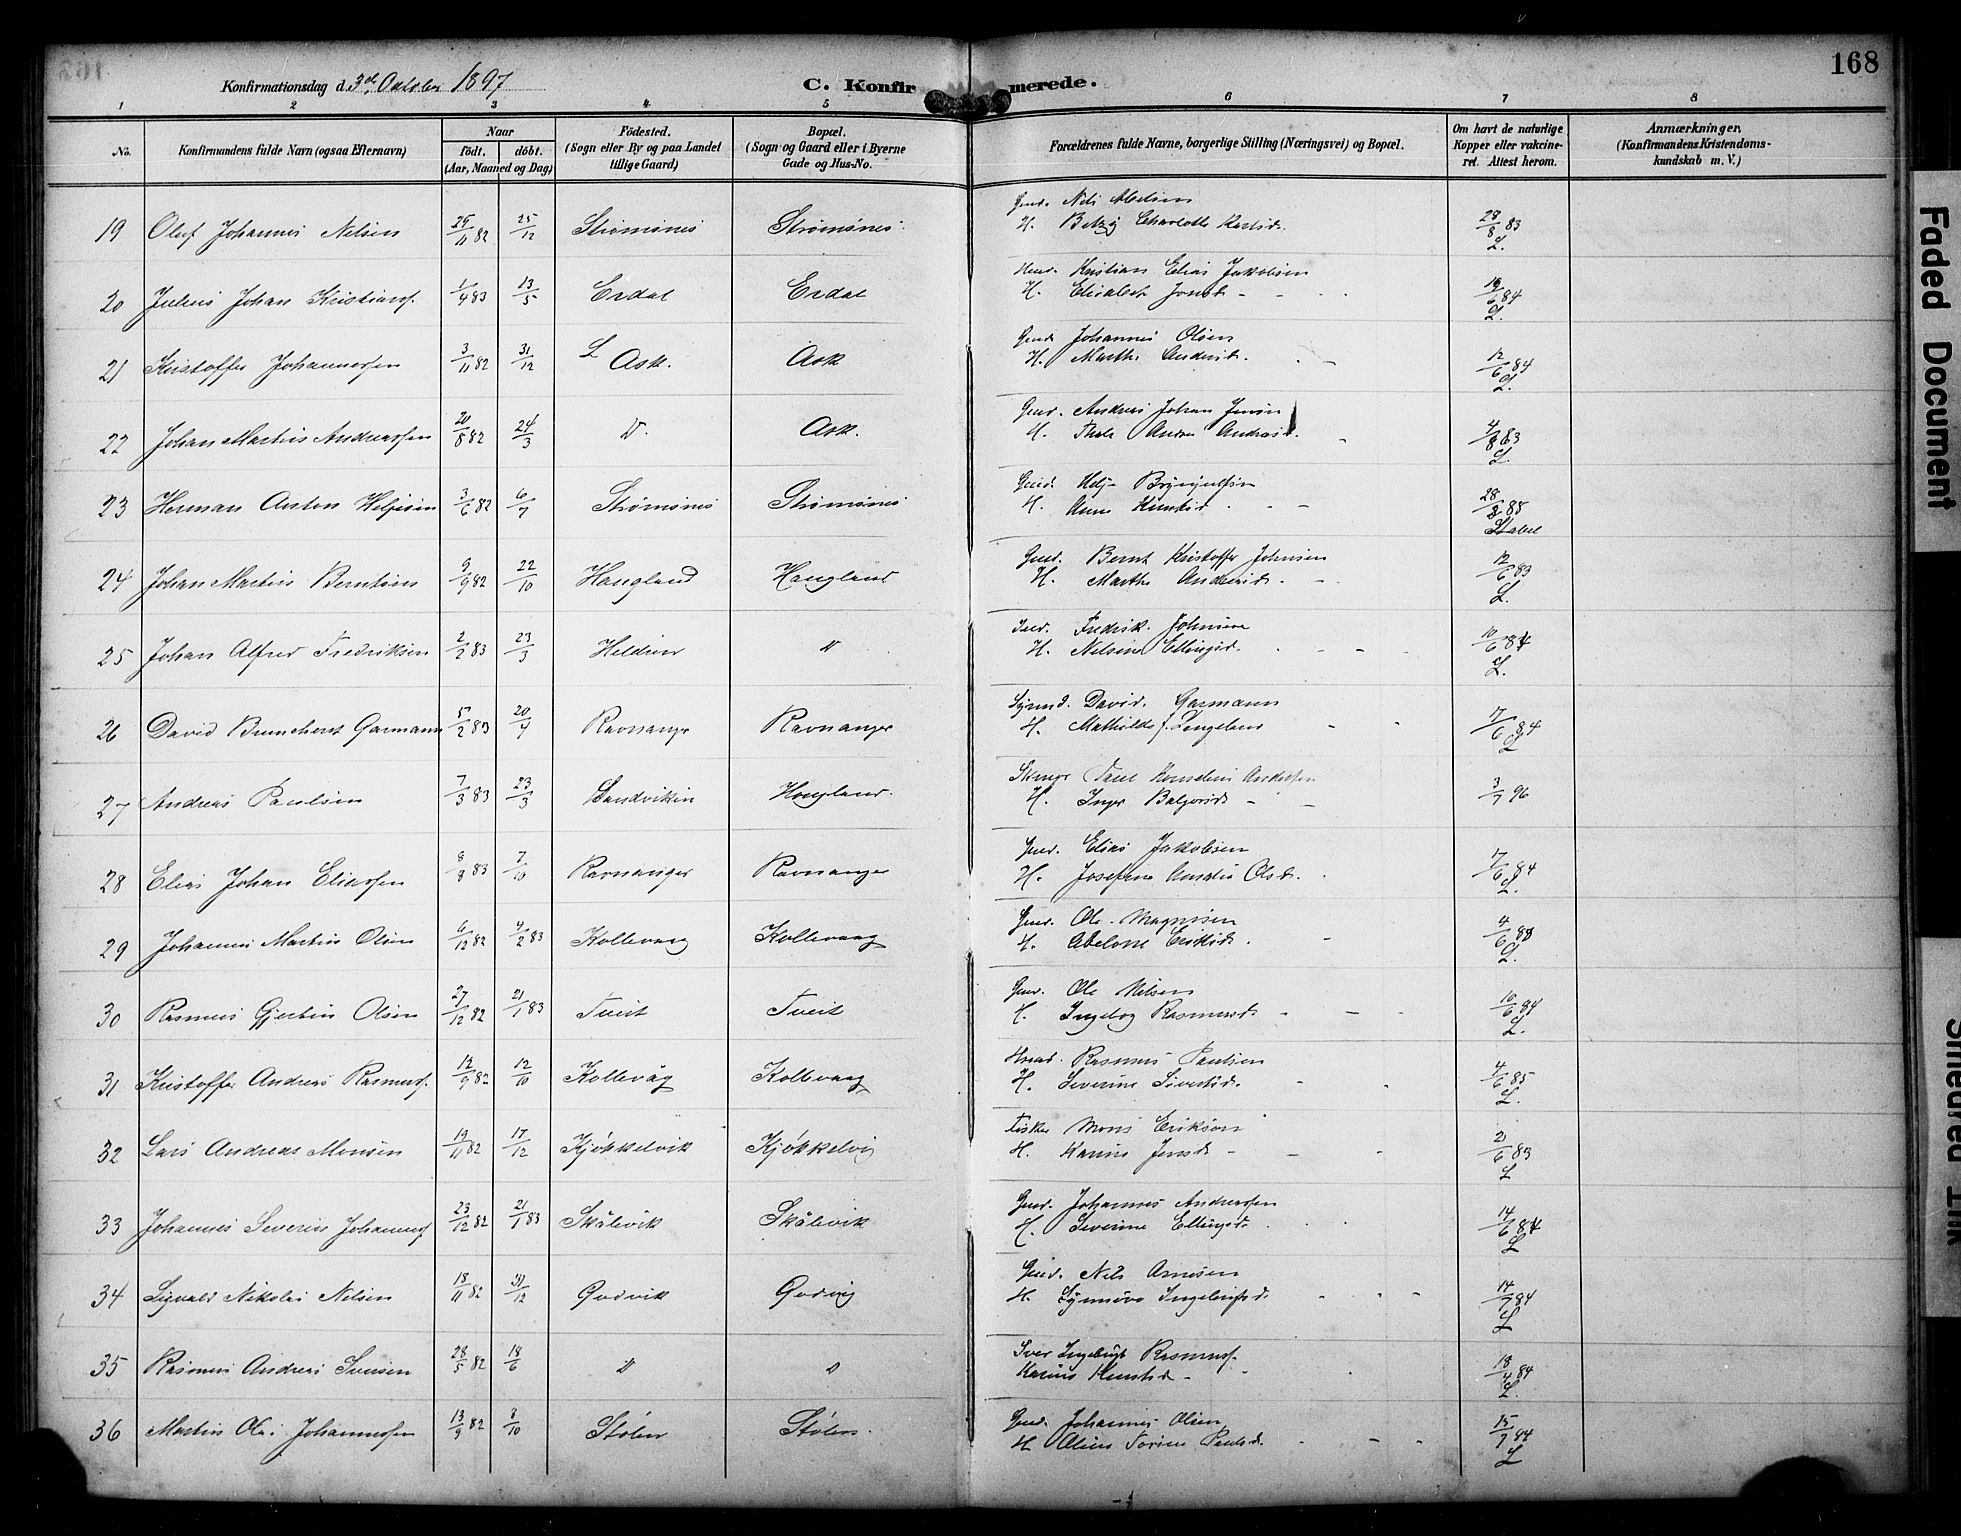 168
Konfirmationsdag d. 3de Oktober 1897
C. Konfirmerede.
1 2 3 4 5 6 7 8
No.
Konfirmandens fulde Navn (ogsaa Efternavn)
Naar
født. døbt.
(Aar, Maaned og Dag)
Fødested.
(Sogn eller By og paa Landet
tillige Gaard)
Bopæl.
(Sogn og Gaard eller i Byerne
Gade og Hus-No.
Forældrenes fulde Navne, borgerlige Stilling (Næringsvei) og Bopæl.
Om havt de naturlige
Kopper eller vakcine-
ret. Attest herom.
Anmærkninger.
(Konfirmandens Kristendoms-
kundskab m. V.)
19 Oluf Johannes Nilsen 25/11 82 25/12 Strømsnes Strømsnes
H. Betzy Charlotte
28/8 83
L.
20 Julius Johan Kristians. 1/4 83 13/5 Erdal Erdal
Kristian Elias Jakobsen
H. Elisabet Jonsd.
19/6 84
L.
21 Kristoffer Johannessen 3/11 82 31/12 L Ask. Ask
Gmd. Johannes Olsen
H. Marthe Andersd.
12/6 84
L.
22 Johan Martin Andreassen 20/8 82 24/3 Ask.
Gmd. Andreas Johan Jensen
H.
4/8 83
L.
23 Herman Anton Heljesen 3/6 82 6/7 Strømsnes Strømsnes
Gmd. Helje Brynjulfsen
H. Anne Knutsd.
28/8 88
24 Johan Martin Berntsen 9/9 82 22/10 Haugland Haugland
Gmd. Bernt Kristoffer Johnsen
H. Marthe Andersd.
12/6 83
L.
25 Johan Alfred Fredriksen 2/2 83 23/3 Heldren
Fredrik Johnsen
H. Nilsine Ellingsd.
10/6 84
L.
26 David Brunchorst Garmann 5/2 83 20/4 Ravnanger Ravnanger
David Garmann
H. Mathilde f. Lengeland
7/6 84
L
27 Andreas Paulsen 7/3 83 23/3 Sandviken Haugland.
Paul Kornelius Andersen
H. Inger
3/7 96
28 Elias Johan Eliassen 8/8 83 7/10 Ravnanger Ravnanger
Gmd. Elias Jakobsen
H. Josefine Amalie Olsd.
7/6 84
L.
29 Johannes Martin Olsen 6/12 82 4/2 83 Kollevaag Kollevaag
Gmd. Ole Magnusen
H. Abelone Eriksd.
4/6 83
L.
30 Rasmus Gjertin Olsen 27/12 82 21/1 83 Tveit Tveit
Gmd. Ole Nilsen
H. Ingeborg Rasmusd.
10/6 84
L.
31 Kristoffer Andreas Rasmuss. 12/9 82 12/10 Kollevåg Kollevaag
Rasmus Paulsen
H. Severine Sivertsd.
4/6 85
L.
32 Lars Andreas Monsen 19/11 82 17/12 Kjøkkelvik Kjøkkelvig
Fisker Mons Erikson
H. Karine Jensd.
2/6 83
L
33 Johannes Severin Johanness. 23/12 82 21/1 83 Skålevik Skålevik
Gmd. Johannes Andreassen
H. Severine Ellingsd.
14/6 84
L
34 Sigvald Nikolai Nilsen 18/11 82 31/12 Godvik Godvig
Gmd. Nils Arnesen
H. Synnøve Ingebrigtsd.
14/7 84
L
35 Rasmus Andreas Iversen 28/5 82 18/6
Iver Ingebrigt Rasmuss.
Karine Knutsd.
18/4 84
L.
36 Martin Ole Johannessen 13/9 82 8/10 Stølen Stølen.
Gmd. Johannes Olsen
H.
15/7 84
L
Faded Document